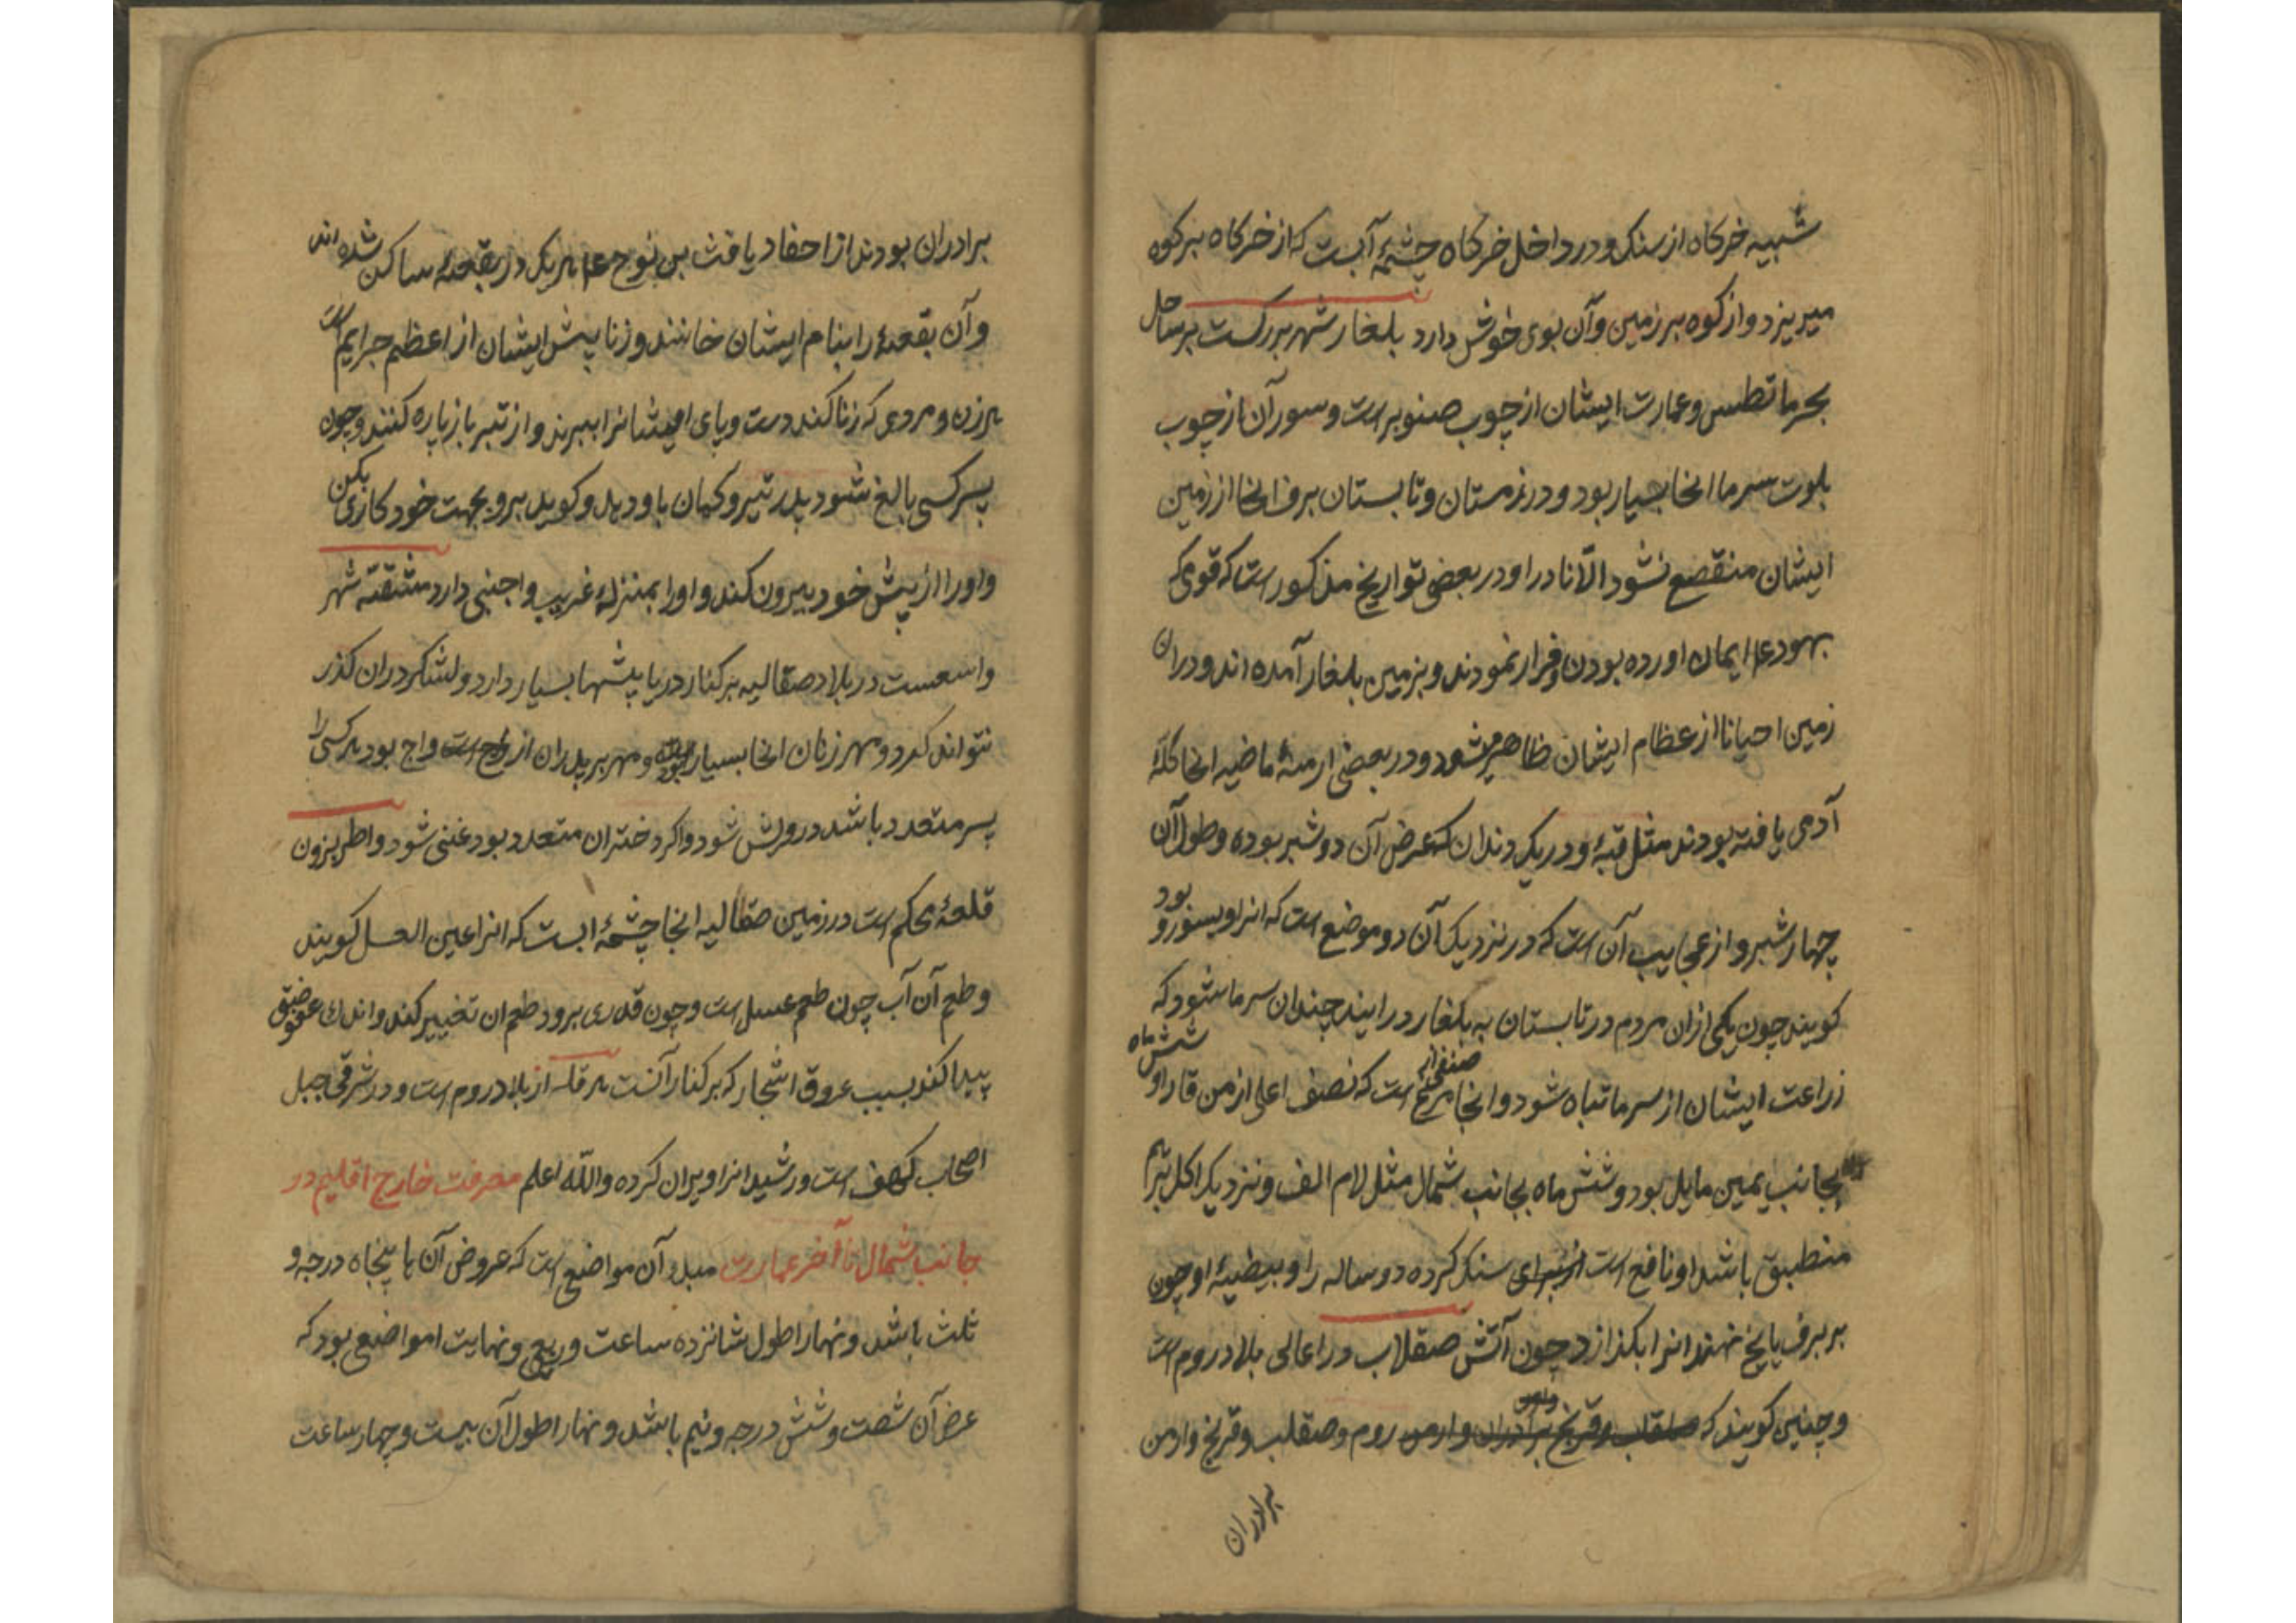 شبیه خرکاه از سنک و در داخل خرکاه چشمهٔ آبست که از خرکاه بر کوه
میریزد و از کوه بر زمین و آن بوی خوش دارد بلغار شهر بزرکست بر ساحل
بحر مانطس و عمارت ایشان از چوب صنوبر است و سور آن از چوب
بلوت سرما انجا بسیار بود و در زمستان و تابستان برف انجا از زمین
ایشان منقصع نشود الّا نادرا و در بعضی تواریخ مذکور است که قومی که
بهود ع‍م ایمان اورده بودن و فرار نمودند و بزمین بلغار آمده اند و در ان
زمین احیانا از عظام ایشان ظاهر میشود و در بعضی ازمنهٔ ماضیه انجا کلهٔ
آدمی یافته بودند مثل قبهٔ و در یک دندان که عرض آن دو شبر بوده و طول آن
چهار شبر بود و از عجایب آن است که در نزدیک آن دو موضع است که انرا ویسو و
کویند چون یکی از ان مردم در تابستان به بلغار در ایند چندان سرما شود که
زراعت ایشان از سرما تباه شود و انجا صنفی از مرغ است که نصف اعلی از من قار او شش ماه
بجانب یمین مایل بود و شش ماه بجانب شمال مثل لام الف و نزدیک اکل برهم
منطبق باشد او نافع است از برای سنک کرده دو ساله را و بیضهٔ او چون
بر برف یا یخ نهند انرا بکذازد چون آتش صقلاب در اعالی بلاد روم است
و چنین کویند که روم و صقلب و فرنج و ارمن
برادران
برادران بودند از احفاد یافث بن نوح ع‍م هر یک در بقعهٔ ساکن شده اند
و آن بقعهٔ را بنام ایشان خانند و زنا پیش ایشان از اعظم جرایم است
هر زن و مردی که زنا کند دست و پای ایشانرا ببرند و از تبر باز پاره کنند و چون
پسر کسی بالغ شود پدر تیر و کمان باو دهد و کوید برو بجهت خود کاری بکن
و او را از پیش خود بیرون کند و او را بمنزلهٔ غریب و اجنبی دارد مشقته شهر
واسعست در بلاد صقالیه بر کنار دریا بیشها بسیار دارد و لشکر در ان کذر
نتواند کرد و مهر زنان انجا بسیار بود و مهر بر پدران ازواج بود هر کسی را
پسر متعدد باشد درویش شود و اکر دختران متعدد بود غنی شود واطربزون
قلعهٔ محکم است در زمین صقالیه انجا چشمهٔ ابست که انرا عین العسل کویند
و طعم آن آب چون طعم عسل است و چون قدری برود طعم ان تغییر کند و اندک عفوصتی
پیدا کند بسبب عروق اشجار که بر کنار آنست هرقله از بلاد روم است و در شرقی جبل
اصحاب کهف است و رشید انرا ویران کرده والله اعلم معرفت خارج اقلیم در
جانب شمال تا آخر عمارت مبداء آن مواضع است که عروض آن با پنجاه درجه و
ثلث باشد و نهار اطول شانزده ساعت و ربع و نهایت ا مواضع بود که
عرض آن شصت و شش درجه و نیم باشد و نهار اطول آن بیست و چهار ساعت